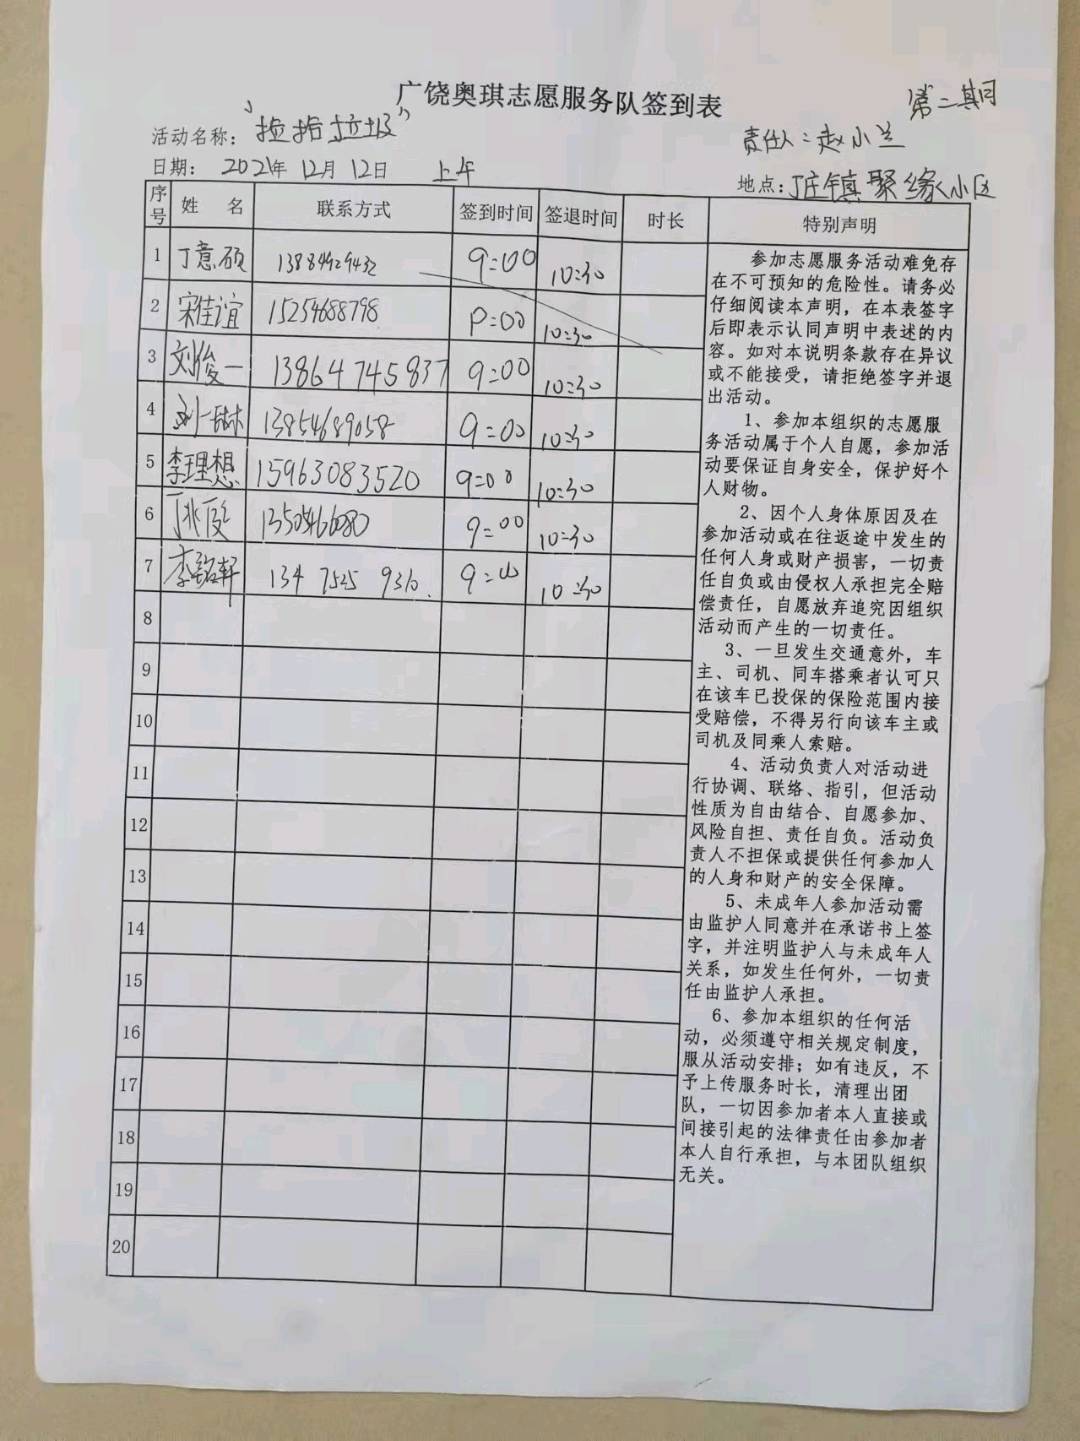 广饶奥琪志愿服务队签到表
第二期
活动名称：“捡拾垃圾”
责任人：赵小兰
日期： 2021年 12月 12日 上午
地点：丁庄镇聚缘小区
序号 姓 名 联系方式 签到时间 签退时间 时长 特别声明
1 丁意硕 13884929432 9:00 10:30
2 宋佳谊 15254688798 9:00 10:30
3 刘俊一 13864745837 9:00 10:30
4 13854689058 9:00 10:30
5 李理想 15963083520 9:00 10:30
6 13505466080 9:00 10:30
7 李铭轩 134 7525 9310. 9:00 10:30
8
9
10
11
12
13
14
15
16
17
18
19
20
参加志愿服务活动难免存
在不可预知的危险性。请务必
仔细阅读本声明，在本表签字
后即表示认同声明中表述的内
容。如对本说明条款存在异议
或不能接受，请拒绝签字并退
出活动。
1、参加本组织的志愿服
务活动属于个人自愿，参加活
动要保证自身安全，保护好个
人财物。
2、因个人身体原因及在
参加活动或在往返途中发生的
任何人身或财产损害，一切责
任自负或由侵权人承担完全赔
偿责任，自愿放弃追究因组织
活动而产生的一切责任。
3、一旦发生交通意外，车
主、司机、同车搭乘者认可只
在该车已投保的保险范围内接
受赔偿，不得另行向该车主或
司机及同乘人索赔。
4、活动负责人对活动进
行协调、联络、指引，但活动
性质为自由结合、自愿参加、
风险自担、责任自负。活动负
责人不担保或提供任何参加人
的人身和财产的安全保障。
5、未成年人参加活动需
由监护人同意并在承诺书上签
字，并注明监护人与未成年人
关系，如发生任何外，一切责
任由监护人承担。
6、参加本组织的任何活
动，必须遵守相关规定制度，
服从活动安排；如有违反，不
予上传服务时长，清理出团
队，一切因参加者本人直接或
间接引起的法律责任由参加者
本人自行承担，与本团队组织
无关。